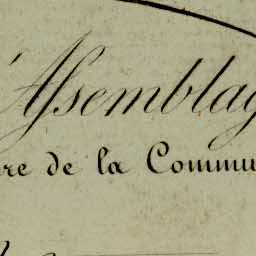 'Assemblag
re de la Commu